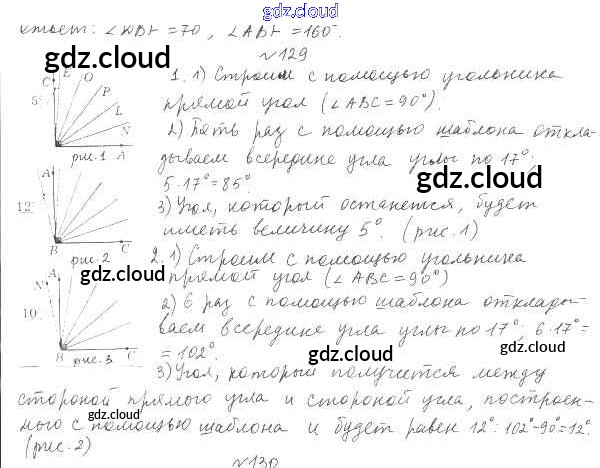 gdz.cloud
Ответ: ∠DBF = 70, ∠ABF = 160°.
№129
1. 1) Строим с помощью угольника
прямой угол (∠ABC = 90°).
2) Пять раз с помощью шаблона откла-
дываем всередине угла углы по 17°:
5·17° = 85°.
3) Угол, который останется, будет
иметь величину 5°. (рис. 1)
C E O P L N B A
5°
рис. 1
2. 1) Строим с помощью угольника
прямой угол (∠ABC = 90°)
2) 6 раз с помощью шаблона отклады-
ваем всередине угла углы по 17°; 6·17° =
= 102°.
3) Угол, который получится между
стороной прямого угла и стороной угла, построен-
ного с помощью шаблона и будет равен 12°: 102°-90°=12°.
(рис. 2)
A 12 B C
рис. 2
A 10 B C
рис. 3
№130
gdz.cloud
gdz.cloud
gdz.cloud
gdz.cloud
gdz.cloud
gdz.cloud
gdz.cloud
gdz.cloud
gdz.cloud
gdz.cloud